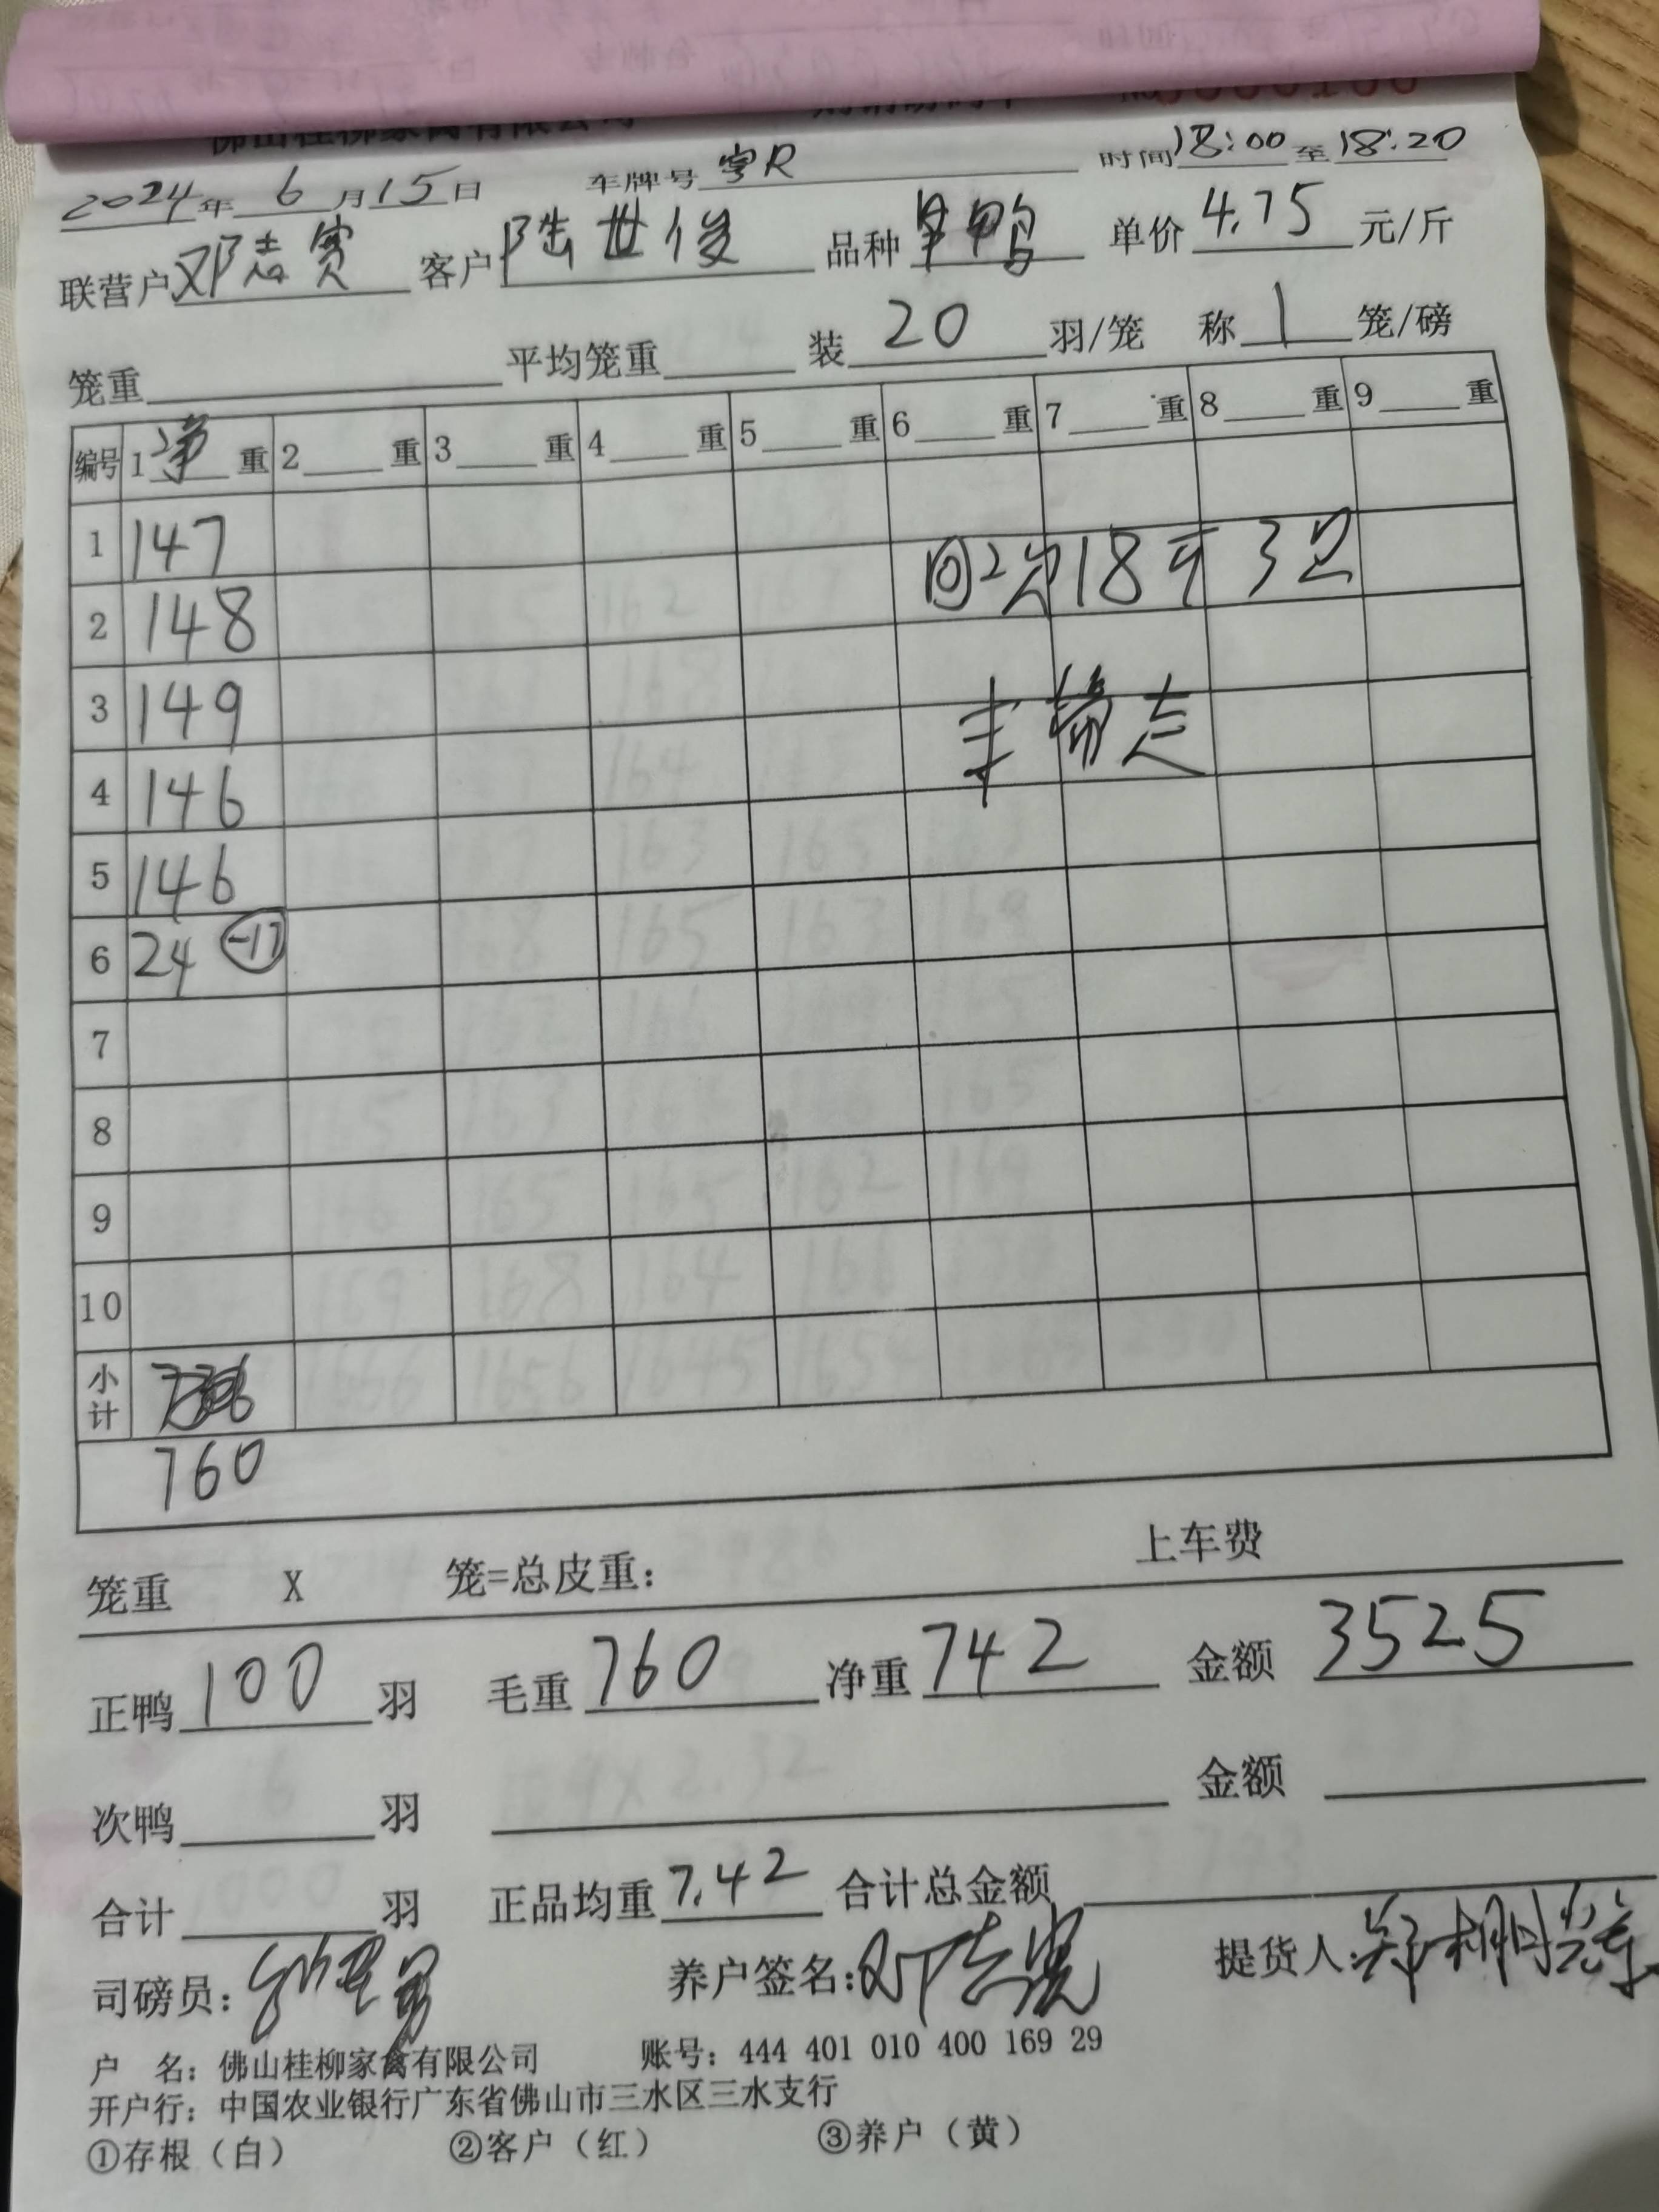 佛山桂柳家禽有限公司
2024年6月15日 车牌号 粤R 时间18:00至18:20
联营户 邓志宽 客户 陆世俊 品种 单价4.75元/斤
笼重 平均笼重 装20羽/笼 称1笼/磅
编号 1净重 2 重 3 重 4 重 5 重 6 重 7 重 8 重 9 重
1 147
2 148 回2次18斤3只
3 149
4 146
5 146
6 24 -17
7
8
9
10
小计
760
笼重 X 笼=总皮重: 上车费
正鸭100羽 毛重760 净重742 金额3525
次鸭 羽 金额
合计 羽 正品均重7.42 合计总金额
司磅员: 养户签名: 提货人:
户 名: 佛山桂柳家禽有限公司 账号: 444 401 010 400 169 29
开户行: 中国农业银行广东省佛山市三水区三水支行
①存根（白） ②客户（红） ③养户（黄）